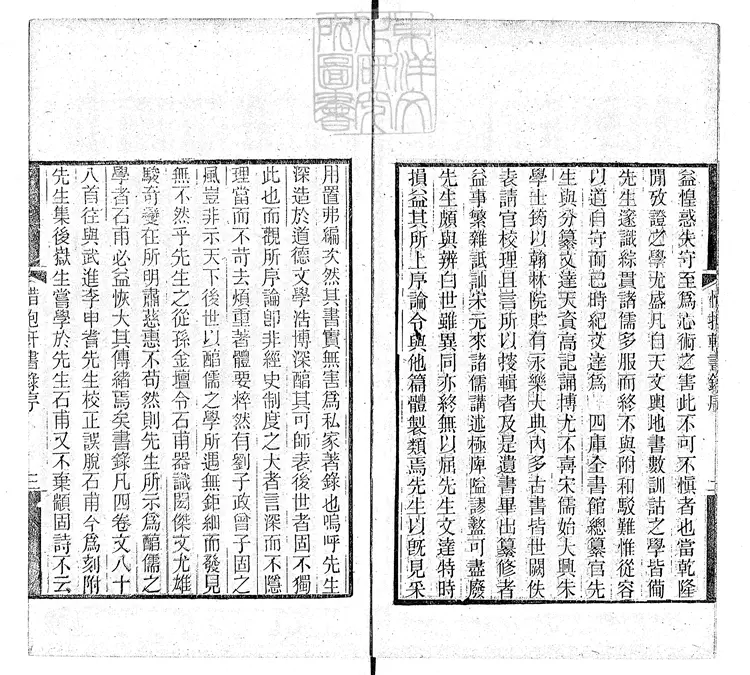 益惶惑失守至爲心術之害此不可不愼者也當乾隆
閒攷證之學尤盛凡自天文輿地書數訓詁之學皆備
先生邃識綜貫諸儒多服而終不與附和駁難惟從容
以道自守而已時紀文達爲 四庫全書館總纂官先
生與分纂文達天資高記誦博尤不喜宋儒始大興朱
學士筠以翰林院貯有永樂大典內多古書皆世闕佚
表請官校理且言所以搜輯者及是遺書畢出纂修者
益事繁雜詆訕宋元來諸儒講述極庳嗌謬盭可盡廢
先生頗與辨白世雖異同亦終無以屈先生文達特時
損益其所上序論令與他篇體製類焉先生以旣見采
惜抱軒書錄序
二
用置弗編次然其書實無害爲私家著錄也嗚呼先生
深造於道德文學浩博深醇其可師表後世者固不獨
此也而觀所序論卽非經史制度之大者言深而不隱
理當而不苛去煩重著體要粹然有劉子政曾子固之
風豈非示天下後世以醇儒之學所遇無鉅細而發見
無不然乎先生之從孫金壇令石甫器識閎傑文尤雄
駿奇變在所明肅慈惠不苟然則先生所示爲醇儒之
學者石甫必益恢大其傳緒焉矣書錄凡四卷文八十
八首往與武進李申耆先生校正誤脫石甫今爲刻附
先生集後嶽生嘗學於先生石甫又不棄顓固詩不云
惜抱軒書錄序
三